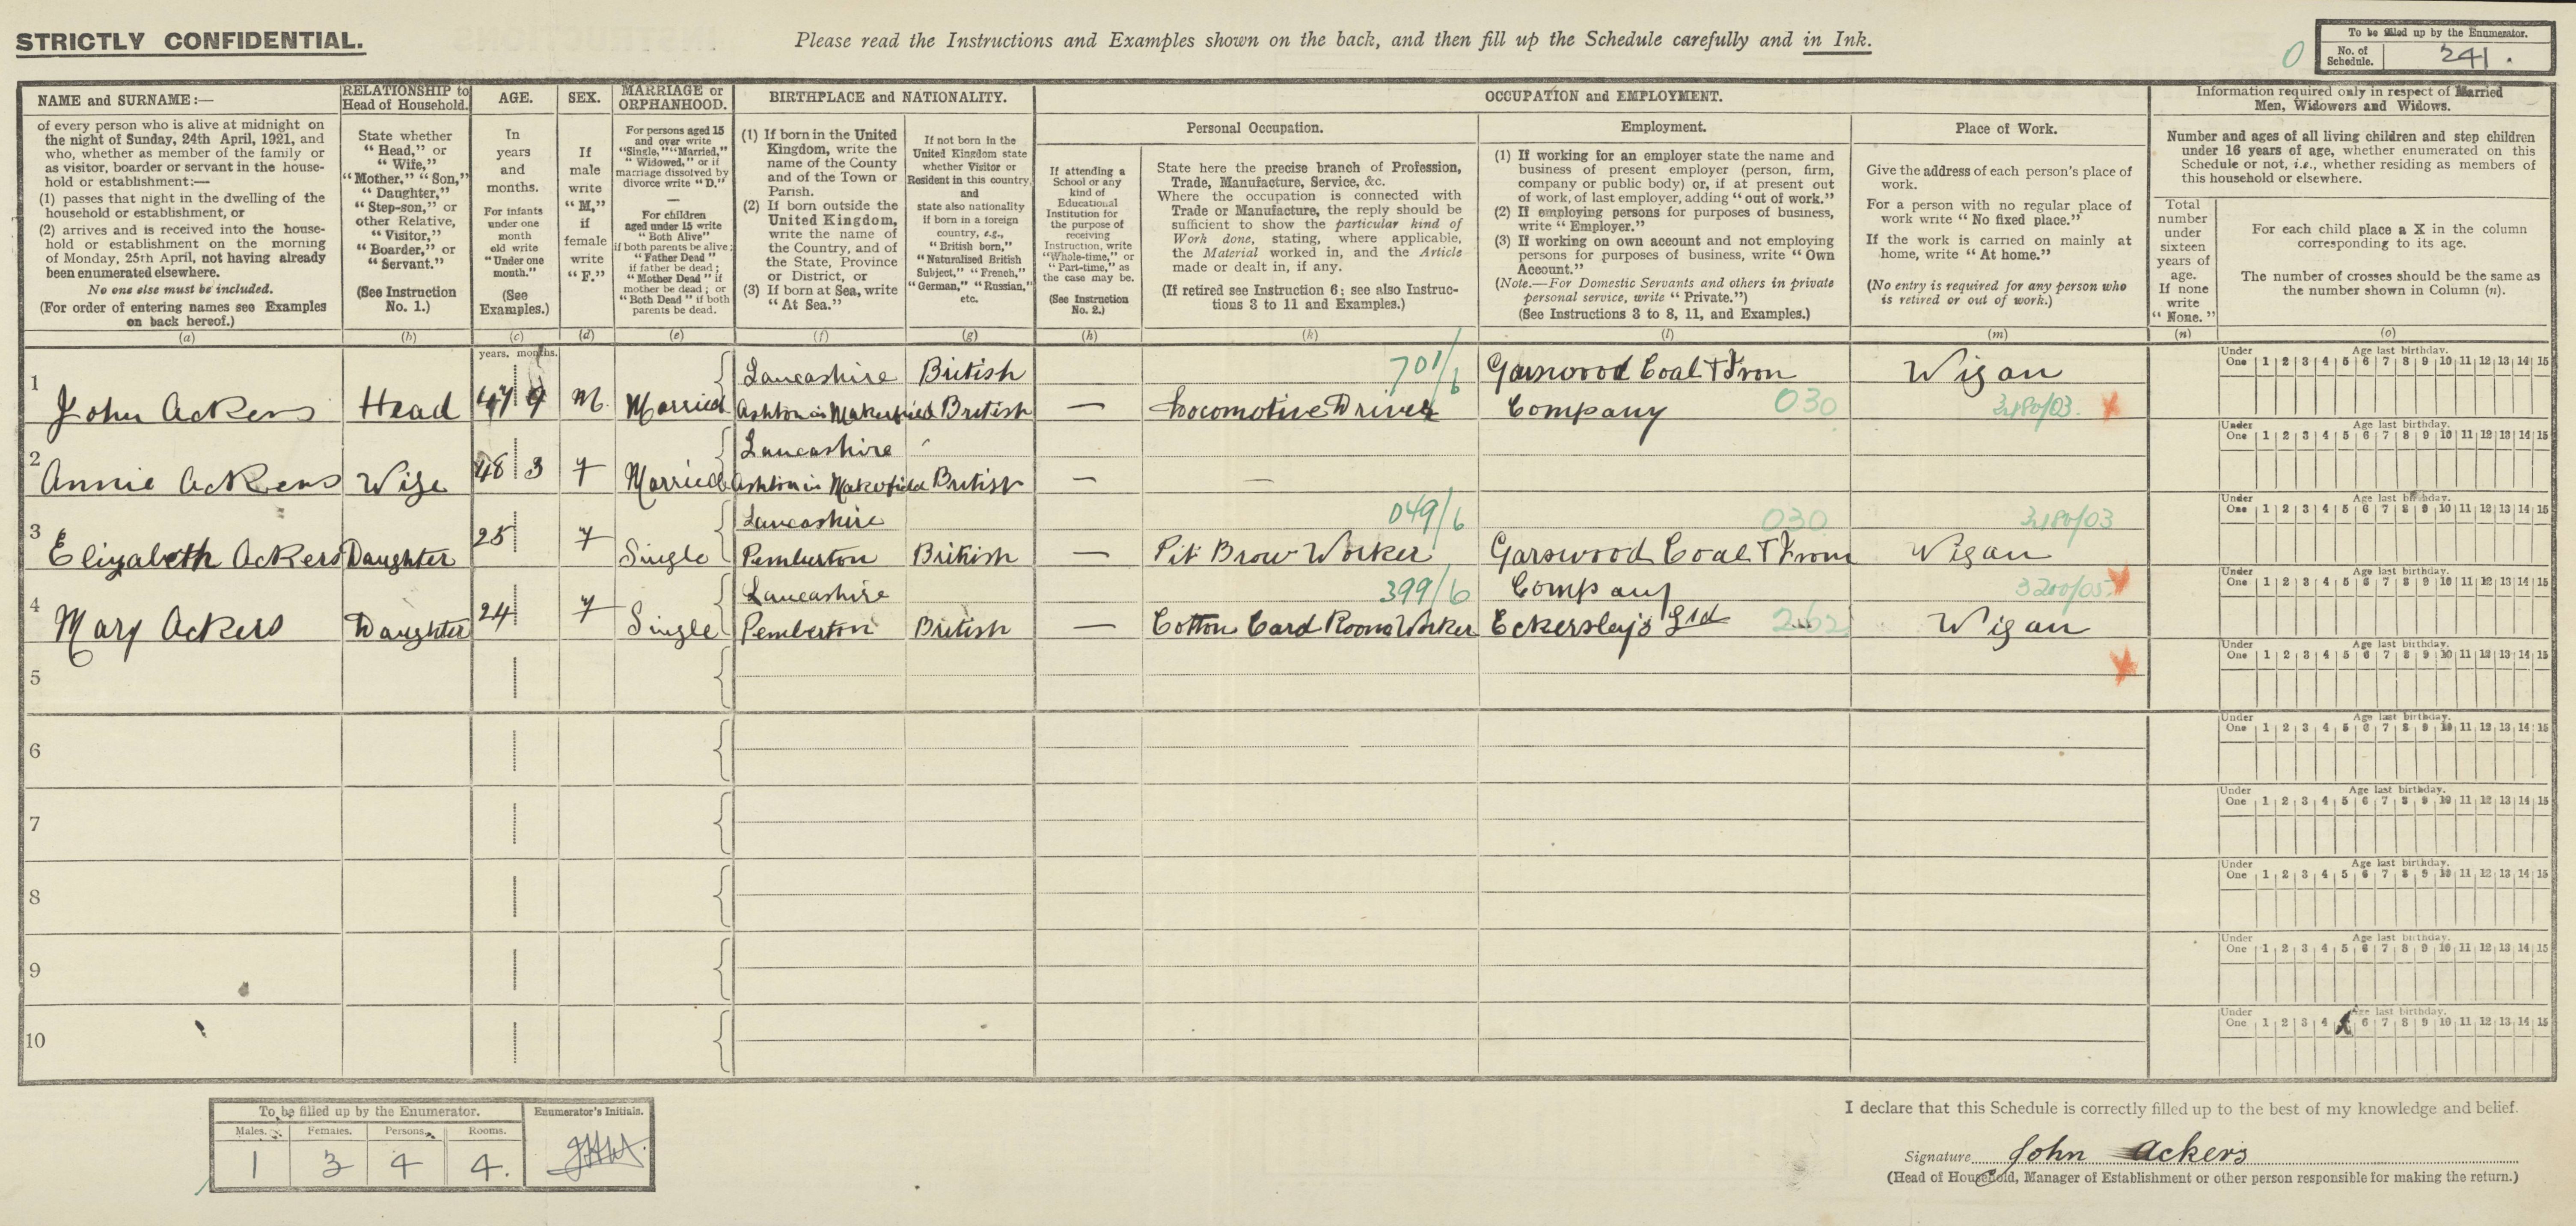 STRICTLY CONFIDENTIAL.
Please read the Instructions and Examples shown on the back, and then fill up the Schedule carefully and in Ink.
0
To be filled up by the Enumerator.
No. of Schedule. 241.
NAME and SURNAME:—
of every person who is alive at midnight on
the night of Sunday, 24th April, 1921, and
who, whether as member of the family or
as visitor, boarder or servant in the house-
hold or establishment:—
(1) passes that night in the dwelling of the
household or establishment, or
(2) arrives and is received into the house-
hold or establishment on the morning
of Monday, 25th April, not having already
been enumerated elsewhere.
No one else must be included.
(For order of entering names see Examples
on back hereof.)
(a)
RELATIONSHIP to
Head of Household.
State whether
"Head," or
"Wife,"
"Mother," "Son,"
"Daughter,"
"Step-son," or
other Relative,
"Visitor,"
"Boarder," or
"Servant."
(See Instruction
No. 1.)
(b)
AGE.
In
years
and
months.
For infants
under one
month
old write
"Under one
month."
(See
Examples.)
(c)
SEX.
If
male
write
"M,"
if
female
write
"F."
(d)
MARRIAGE or
ORPHANHOOD.
For persons aged 15
and over write
"Single," "Married,"
"Widowed," or if
marriage dissolved by
divorce write "D."
For children
aged under 15 write
"Both Alive"
if both parents be alive;
"Father Dead"
if father be dead;
"Mother Dead" if
mother be dead; or
"Both Dead" if both
parents be dead.
(e)
BIRTHPLACE and NATIONALITY.
(1) If born in the United
Kingdom, write the
name of the County
and of the Town or
Parish.
(2) If born outside the
United Kingdom,
write the name of
the Country, and of
the State, Province
or District, or
(3) If born at Sea, write
"At Sea."
(f)
If not born in the
United Kingdom state
whether Visitor or
Resident in this country,
and
state also nationality
if born in a foreign
country, e.g.,
"British born,"
"Naturalised British
Subject," "French,"
"German," "Russian,"
etc.
(g)
OCCUPATION and EMPLOYMENT.
Personal Occupation.
If attending a
School or any
kind of
Educational
Institution for
the purpose of
receiving
Instruction, write
"Whole-time," or
"Part-time," as
the case may be.
(See Instruction
No. 2.)
(h)
State here the precise branch of Profession,
Trade, Manufacture, Service, &c.
Where the occupation is connected with
Trade or Manufacture, the reply should be
sufficient to show the particular kind of
Work done, stating, where applicable,
the Material worked in, and the Article
made or dealt in, if any.
(If retired see Instruction 6; see also Instruc-
tions 3 to 11 and Examples.)
(k)
Employment.
(1) If working for an employer state the name and
business of present employer (person, firm,
company or public body) or, if at present out
of work, of last employer, adding "out of work."
(2) If employing persons for purposes of business,
write "Employer."
(3) If working on own account and not employing
persons for purposes of business, write "Own
Account."
(Note.—For Domestic Servants and others in private
personal service, write "Private.")
(See Instructions 3 to 8, 11, and Examples.)
(l)
Place of Work.
Give the address of each person's place of
work.
For a person with no regular place of
work write "No fixed place."
If the work is carried on mainly at
home, write "At home."
(No entry is required for any person who
is retired or out of work.)
(m)
Information required only in respect of Married
Men, Widowers and Widows.
Number and ages of all living children and step children
under 16 years of age, whether enumerated on this
Schedule or not, i.e., whether residing as members of
this household or elsewhere.
Total
number
under
sixteen
years of
age.
If none
write
"None."
(n)
For each child place a X in the column
corresponding to its age.
The number of crosses should be the same as
the number shown in Column (n).
(o)
years. months.
Lancashire British 701/6 Garswood Coal & Iron Wigan
1 John Ackers Head 47 9 M Married Ashton in Makerfield British — Locomotive Driver Company 030 3180/03
Under One 1 2 3 4 5 6 7 8 9 10 11 12 13 14 15
Age last birthday.
Lancashire
2 Annie Ackers Wife 48 3 F Married Ashton in Makerfield British — —
Under One 1 2 3 4 5 6 7 8 9 10 11 12 13 14 15
Age last birthday.
Lancashire 049/6 030 3180/03
3 Elizabeth Ackers Daughter 25 F Single Pemberton British — Pit Brow Worker Garswood Coal & Iron Wigan
Under One 1 2 3 4 5 6 7 8 9 10 11 12 13 14 15
Age last birthday.
Lancashire 399/6 Company 3200/05
4 Mary Ackers Daughter 24 F Single Pemberton British — Cotton Card Room Worker Eckersley's Ltd 262 Wigan
Under One 1 2 3 4 5 6 7 8 9 10 11 12 13 14 15
Age last birthday.
5
Under One 1 2 3 4 5 6 7 8 9 10 11 12 13 14 15
Age last birthday.
6
Under One 1 2 3 4 5 6 7 8 9 10 11 12 13 14 15
Age last birthday.
7
Under One 1 2 3 4 5 6 7 8 9 10 11 12 13 14 15
Age last birthday.
8
Under One 1 2 3 4 5 6 7 8 9 10 11 12 13 14 15
Age last birthday.
9
Under One 1 2 3 4 5 6 7 8 9 10 11 12 13 14 15
Age last birthday.
10
Under One 1 2 3 4 6 7 8 9 10 11 12 13 14 15
Age last birthday.
To be filled up by the Enumerator.
Males. Females. Persons. Rooms.
1 3 4 4.
Enumerator's Initials.
I declare that this Schedule is correctly filled up to the best of my knowledge and belief.
Signature John Ackers
(Head of Household, Manager of Establishment or other person responsible for making the return.)